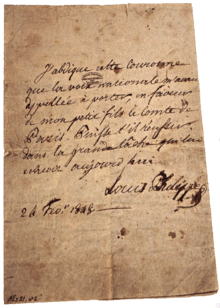 J'abdique cette couronne
que la voix nationale m'avait
appellée à porter, en faveur
de mon petit fils le Comte de
Paris. Puisse t'il réussir
dans la grande tâche qui lui
échoit aujourd'hui.
Louis Philippe
24 Fev.r 1848